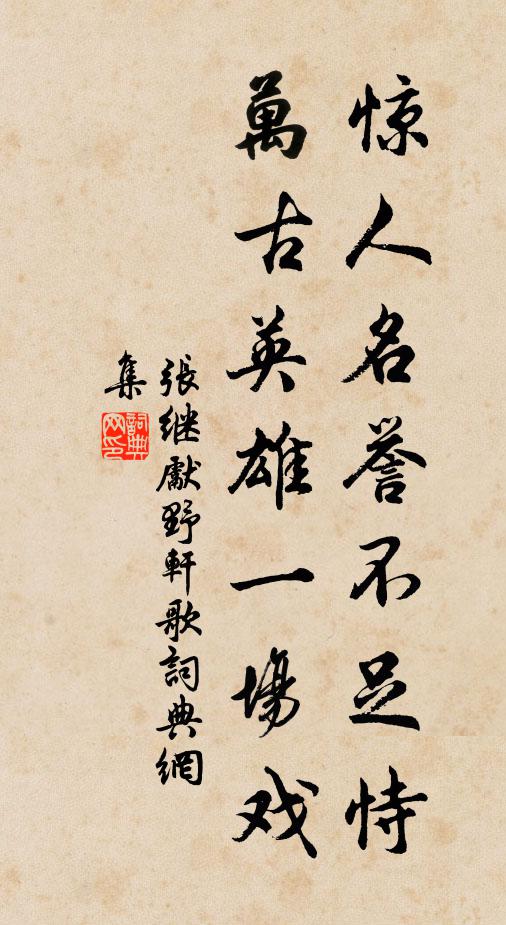 惊人名誉不足恃
萬古英雄一場戏
張继獻野軒歌詞典網
集
詞典
网印